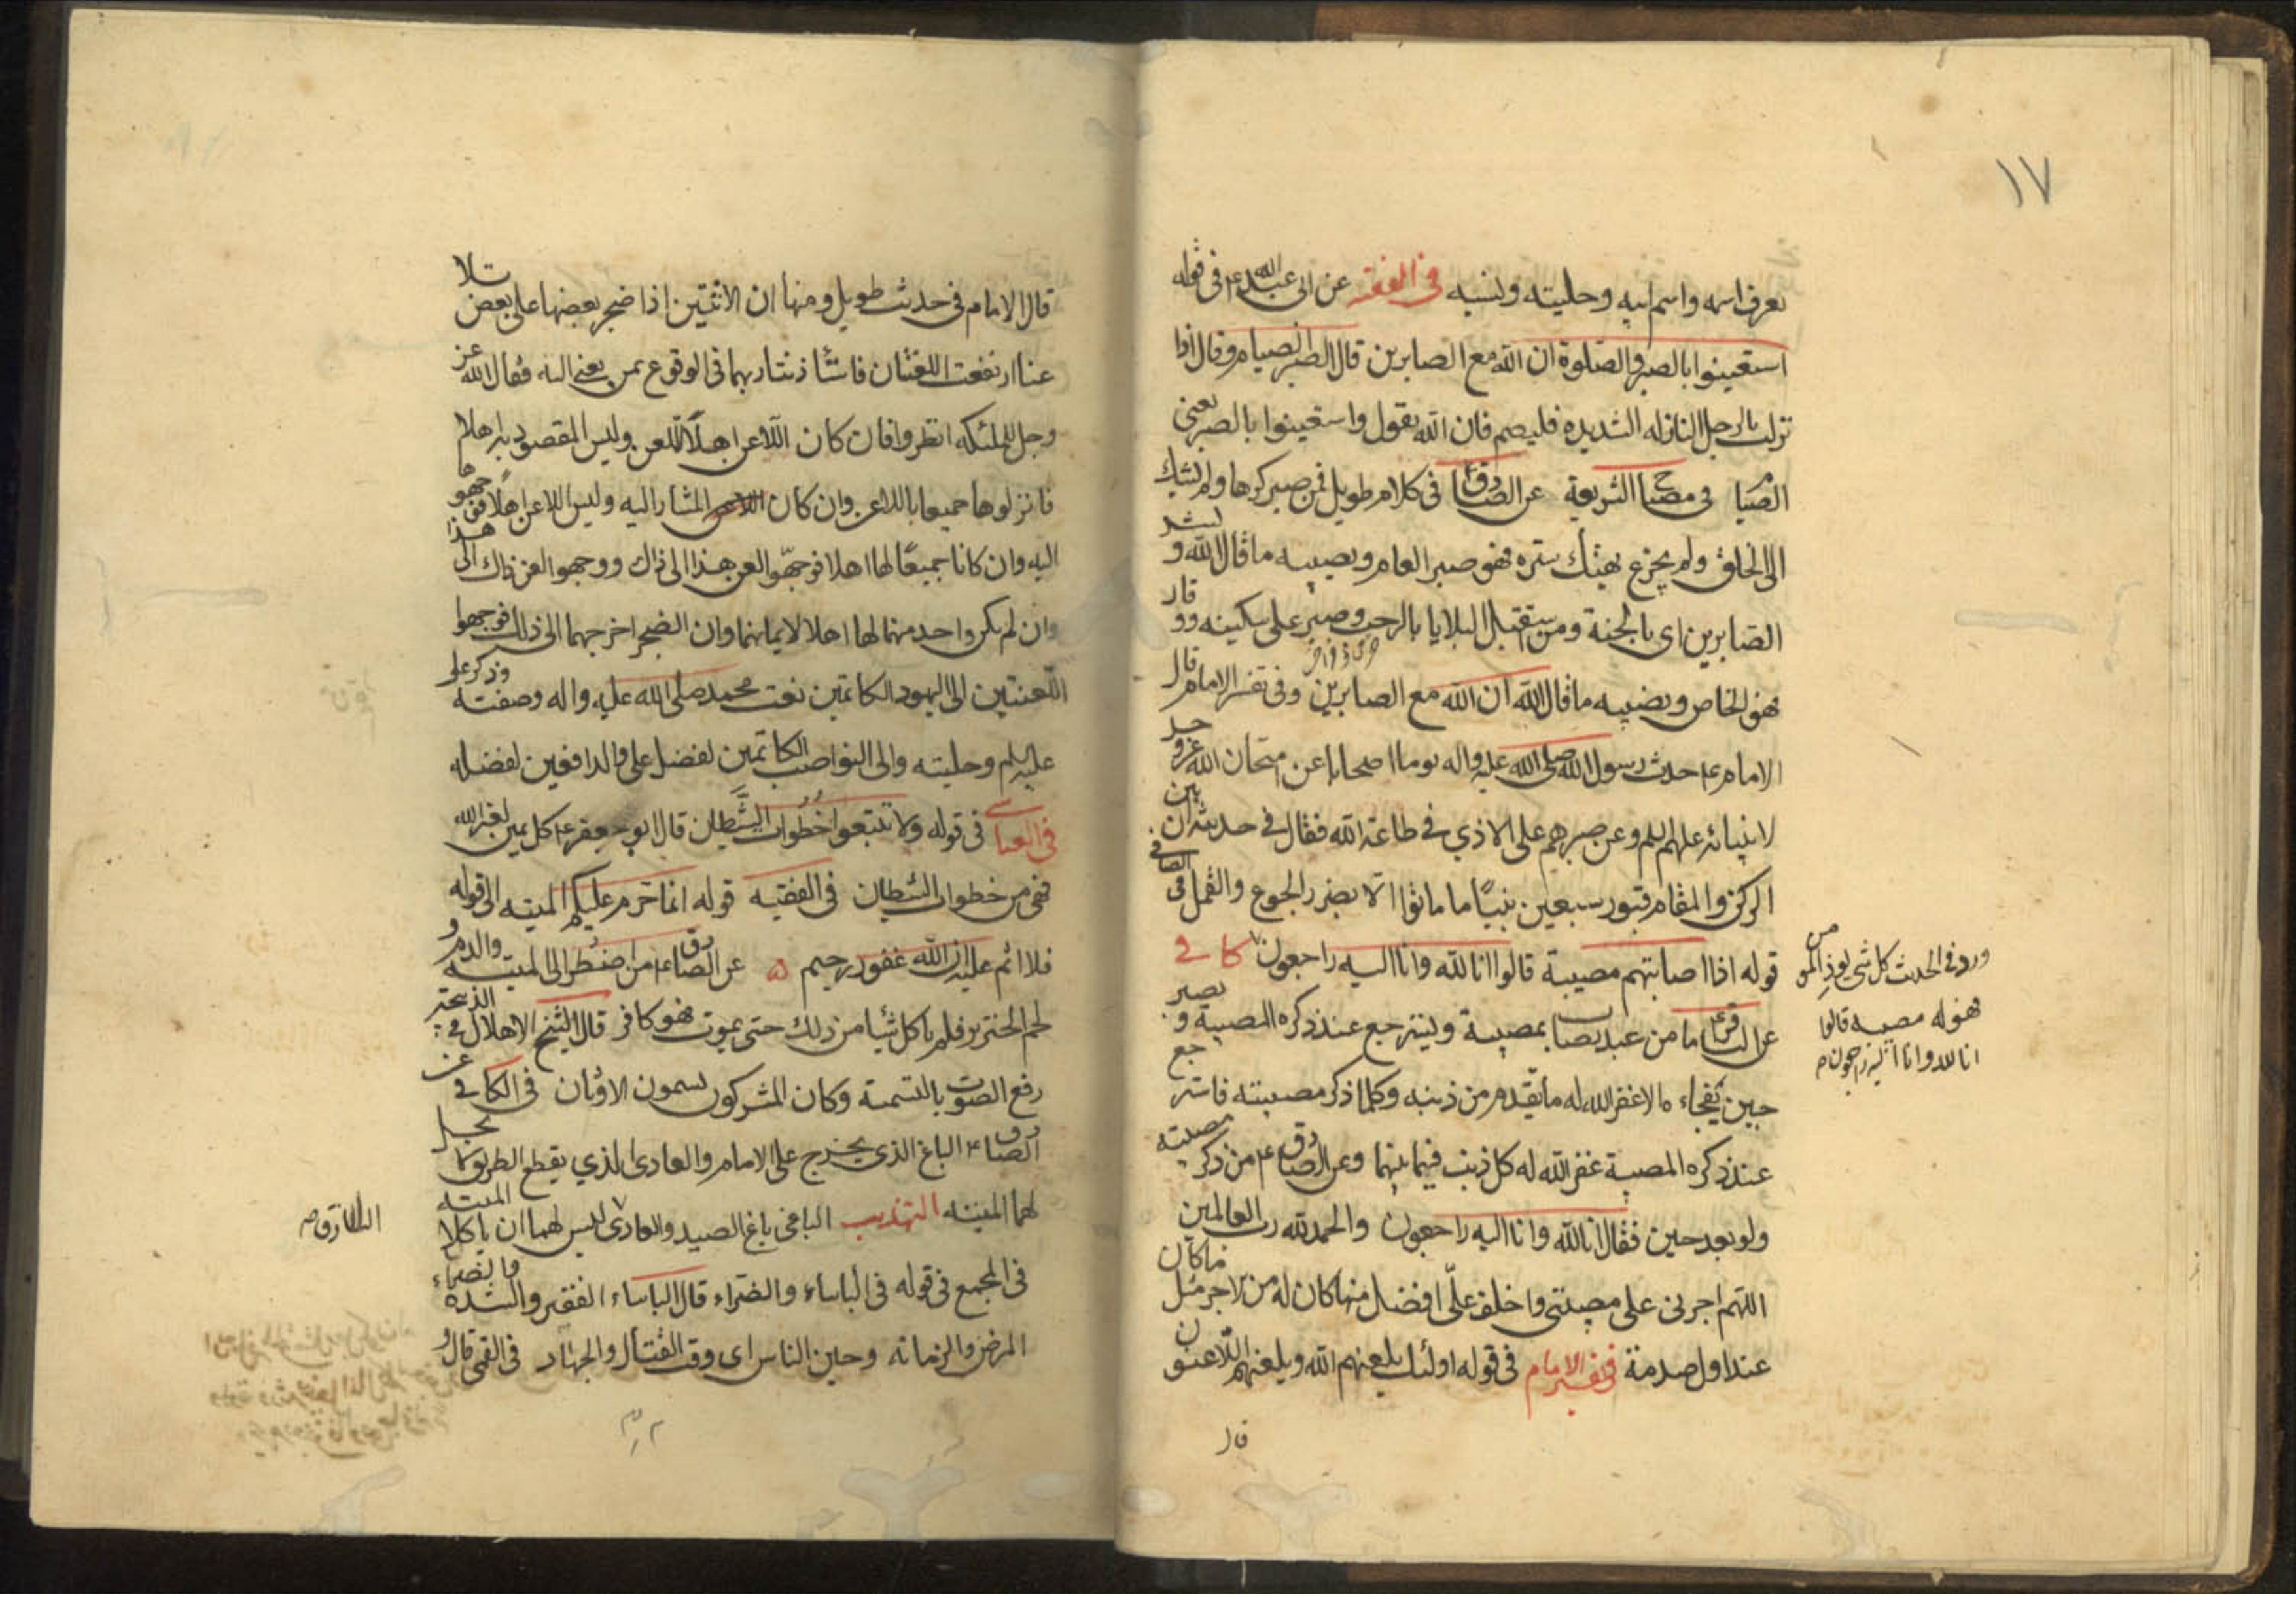 ١٧
يعرف اسمه واسم ابيه وحليته ونسبه في الفقيه عن ابى عبد الله ع في قوله
استعينوا بالصبر والصلوة ان الله مع الصابرين قال الصبر الصيام وقال اذا
نزلت بالرجل النازله الشديده فليصم فان الله يقول واستعينوا بالصبر يعنى
الصيام فى مصباح الشريعة عن الصادق ع فى كلام طويل فمن صبر كرها ولم يشك
الى الخلق ولم يجزع بهتك ستره فهو صبر العام ونصيبه ما قال الله وبشر
الصابرين اى بالجنة ومن استقبل البلايا بالرحب وصبر على سكينه ووقار
فهو الخاص ونصيبه ما قال الله ان الله مع الصابرين وفى تفسير الامام قال
الامام ع حدث رسول الله صلى الله عليه واله يوما اصحابا عن امتحان الله عز وجل
لانبيائه عليهم السلم وعن صبرهم على الاذي في طاعة الله فقال في حديثه ان بين
الركن والمقام قبور سبعين نبيًا ما ماتوا الا بضر الجوع والقمل فى الصافي
قوله اذا اصابتهم مصيبة قالوا انا لله وانا اليه راجعون كافي
عن الباقر ع ما من عبد يصاب بمصيبة ويسترجع عند ذكره المصيبة ويصبر
حين تفجاءه الا غفر الله له ما تقدم من ذنبه وكلما ذكر مصيبته فاسترجع
عند ذكره المصيبة غفر الله له كل ذنب فيما بينهما وعن الصادق ع من ذكر مصيبته
ولو بعد حين فقال انا لله وانا اليه راجعون والحمد لله رب العالمين
اللهم اجرنى على مصيبتى واخلف علىّ افضل منها كان له من الاجر مثل ما كان
عند اول صدمة في تفسير الامام فى قوله اولئك يلعنهم الله ويلعنهم اللاعنون
قال
ورد فى الحديث كل شى يوذى المومن
فهو له مصيبه قالوا
انا لله وانا اليه راجعون
قال الامام فى حديث طويل ومنها ان الاثنين اذا ضجر بعضها على بعض وتلاعنا
ارتفعت اللعنتان فاستأذنتا ربهما فى الوقوع بمن بعثا اليه فقال الله عز
وجل للملئكه انظروا فان كان اللاعن اهلًا للعن وليس المقصود به اهلا
فانزلوهما جميعا باللاعن وان كان المشار اليه وليس اللاعن اهلًا فوجهوهما
اليه وان كانا جميعًا لها اهلا فوجّهوا لعن هذا الى ذاك ووجهوا لعن ذاك الى هذا
وان لم يكن واحد منهما لها اهلا لايمانهما وان الضجر احوجهما الى ذلك فوجهوا
اللعنتين الى اليهود الكاتمين نعت محمد صلى الله عليه واله وصفته وذكر على
عليه السلم وحليته والى النواصب الكاتمين لفضل على والدافعين لفضله
فى العياشي فى قوله ولا تتبعوا خُطُوات الشَّيطان قال ابو جعفر ع كل يمين لغير الله
فهى من خطوات الشيطان فى الفقيه قوله انما حرم عليكم الميته الى قوله
فلا اثم عليه ان الله غفور رحيم عن الصادق ع من اضطر الى الميته والدم و
لحم الخنزير فلم ياكل شيأ من ذلك حتى يموت فهو كافر قال الشيخ الاهلال فى الذبيحة
رفع الصوت بالتسمية وكان المشركون يسمون الاوثان فى الكافى عن
الصادق ع الباغ الذى يخرج على الامام والعادى الذي يقطع الطريق لا يحل
لهما الميته التهذيب الباغى باغ الصيد والعادى ليس لهما ان ياكلا الميته
فى المجمع فى قوله فى الباساء والضراء قال الباساء الفقر والشدة والضراء
المرض والزمانه وحين الباس اى وقت القتال والجهاد فى القمى قال و
السارق